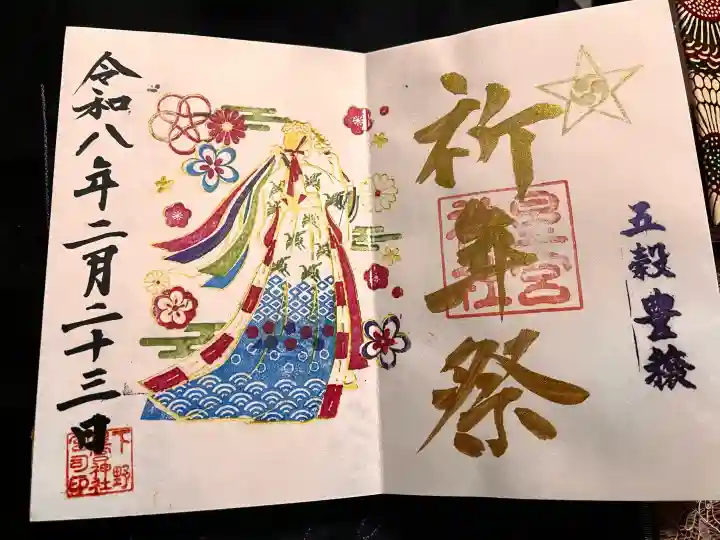 五穀豊穣
祈年祭
星宮神社
令和八年二月二十三日
下野
星宮神社
宮司印